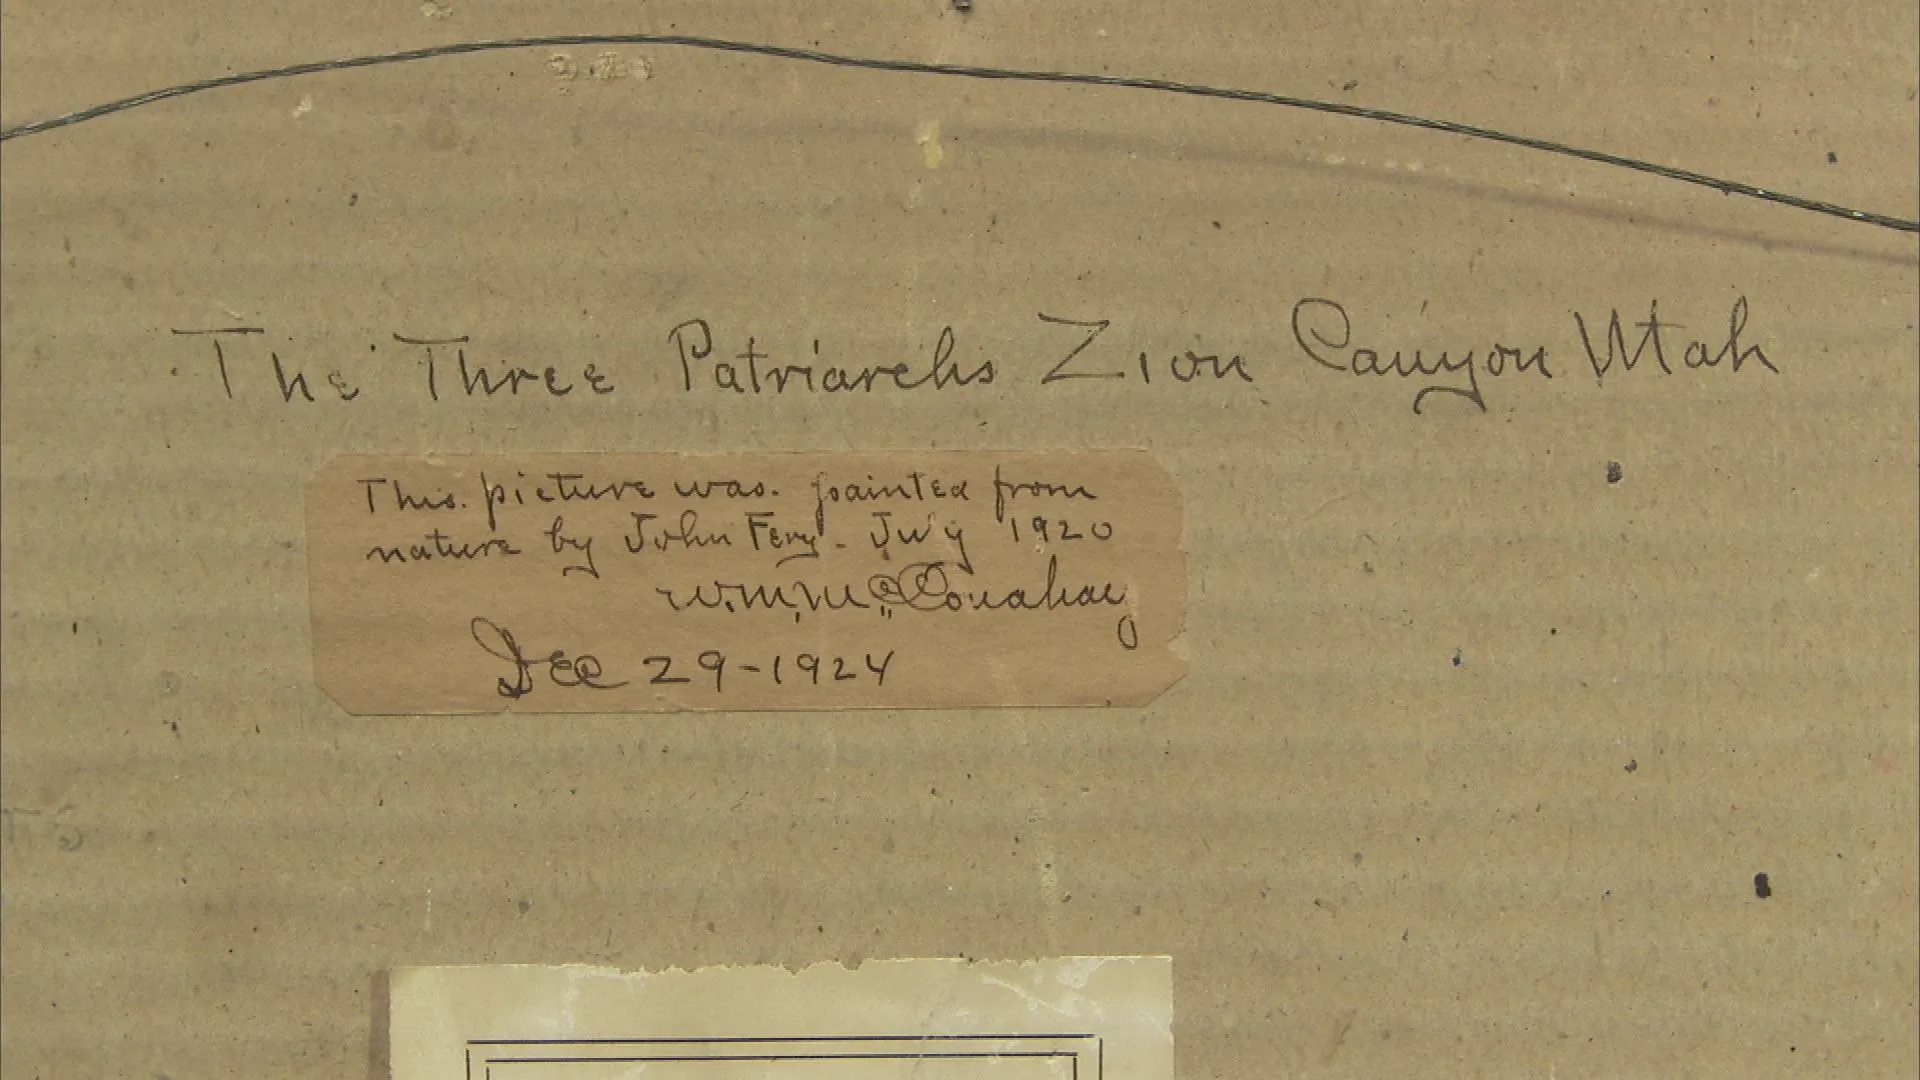 The Three Patriarchs Zion Canyon Utah
This picture was painted from
nature by John Fery - July 1920
Wm. McConahay
Dec 29-1924